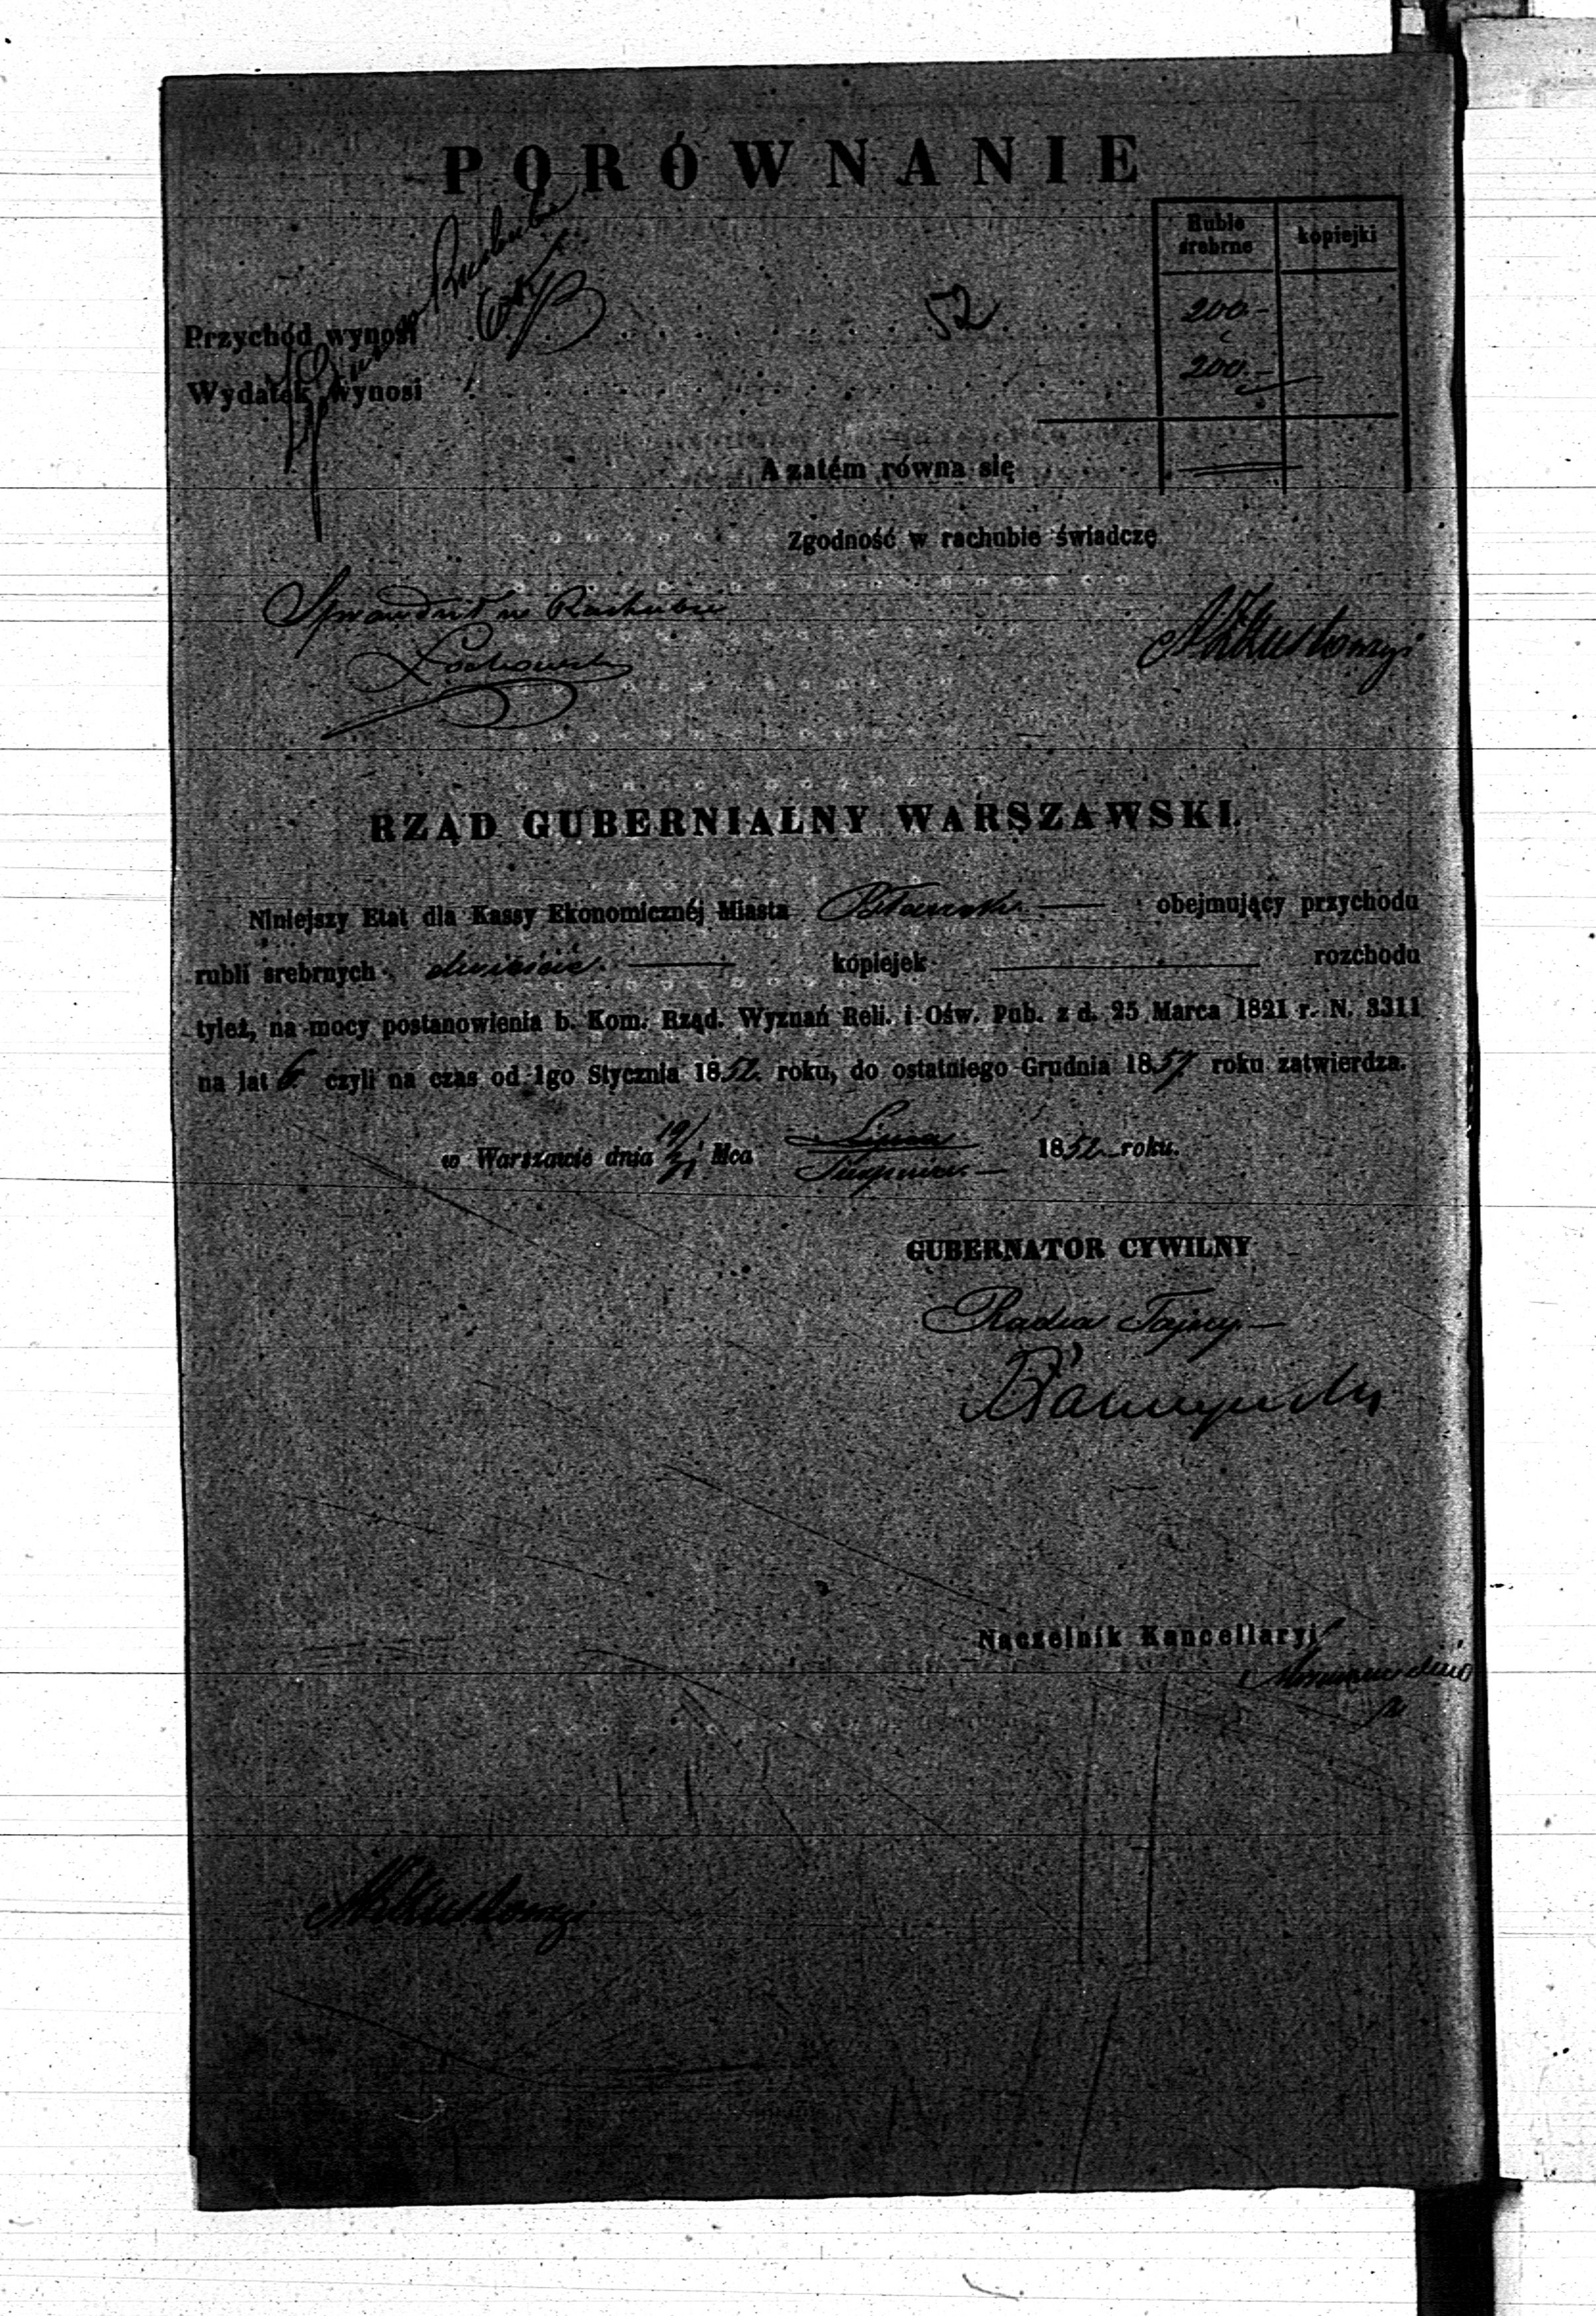 PORÓWNANIE
Ruble srebrne
kopiejki
Przychód wynosi 52 200.-
Wydatek wynosi 200.-
A zatém równa się
Zgodność w rachubie świadczę
Sprawdził w Rachubie
RZĄD GUBERNIALNY WARSZAWSKI.
Niniejszy Etat dla Kassy Ekonomicznéj Miasta obejmujący przychodu
rubli srebrnych dwieście. kopiejek rozchodu
tyleż, na mocy postanowienia b. Kom. Rząd. Wyznań Reli. i Ośw. Pub. z d. 25 Marca 1821 r. N. 3311
na lat 6 czyli na czas od 1go Stycznia 1852. roku, do ostatniego Grudnia 1857 roku zatwierdza.
w Warszawie dnia 19/31 Mca Lipca 1852 roku.
Sierpnia
GUBERNATOR CYWILNY
Radca Tajny
Naczelnik Kancellaryi